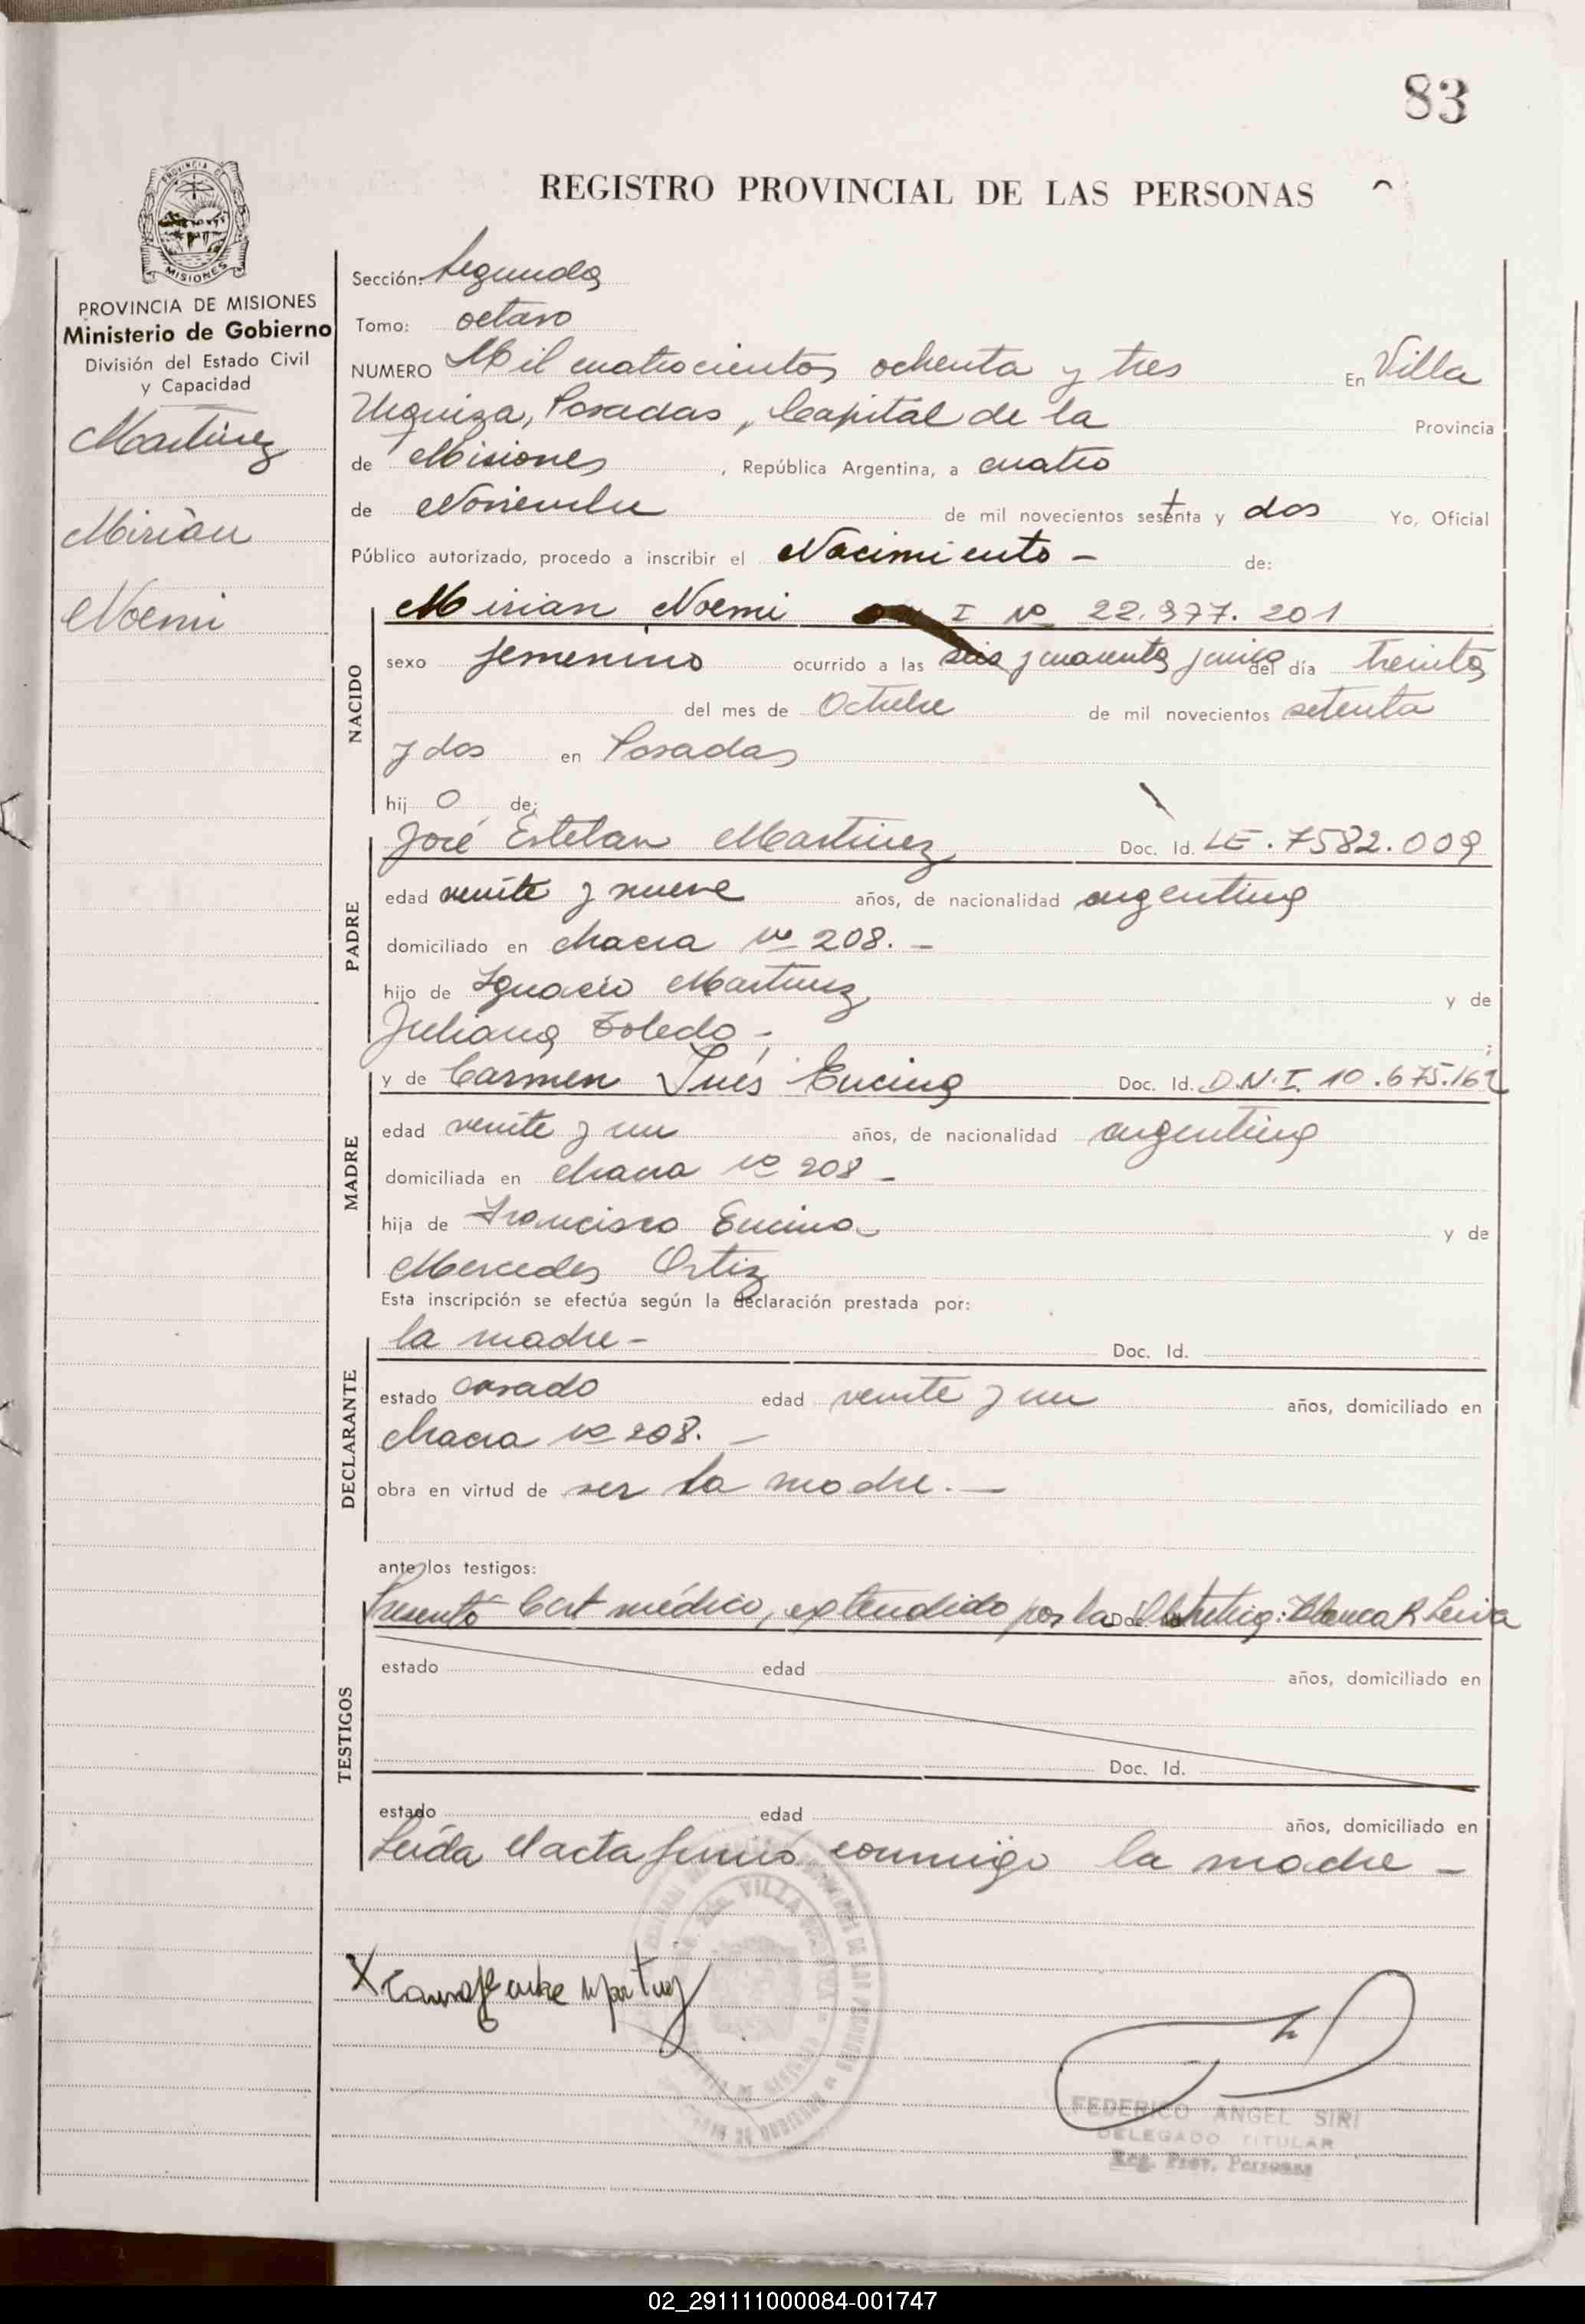 83
REGISTRO PROVINCIAL DE LAS PERSONAS
PROVINCIA DE MISIONES
Ministerio de Gobierno
División del Estado Civil
y Capacidad
Martinez
Mirian
Noemi
Sección: Segunda
Tomo: octavo
NUMERO Mil cuatrocientos ochenta y tres En Villa
Urquiza, Posadas, Capital de la Provincia
de Misiones, República Argentina, a cuatro
de Noviembre de mil novecientos setenta y dos Yo, Oficial
Público autorizado, procedo a inscribir el Nacimiento - de:
NACIDO
Mirian Noemi I Nº 22.977.201
sexo femenino ocurrido a las seis y cuarenta y cinco del día treinta
del mes de Octubre de mil novecientos setenta
y dos en Posadas
hij o de:
PADRE
José Esteban Martinez Doc. Id. LE. 7582.009
edad veinte y nueve años, de nacionalidad argentina
domiciliado en chacra Nº 208. -
hijo de Ignacio Martinez y de
Juliana Toledo - ;
MADRE
y de Carmen Inés Encina Doc. Id. D.N.I. 10.675.162
edad veinte y un años, de nacionalidad argentina
domiciliada en chacra Nº 208 -
hija de Francisco Encina y de
Mercedes Ortiz
Esta inscripción se efectúa según la declaración prestada por:
DECLARANTE
la madre - Doc. Id.
estado casado edad veinte y un años, domiciliado en
chacra Nº 208. -
obra en virtud de ser la madre. -
ante los testigos:
TESTIGOS
Presentó Cert médico, extendido por la Obstetriz: Blanca R Leiva
estado edad años, domiciliado en
Doc. Id.
estado edad años, domiciliado en
Leída el acta firmó conmigo la madre -
FEDERICO ANGEL SIRI
DELEGADO TITULAR
Reg. Prov. Personas
02_291111000084-001747